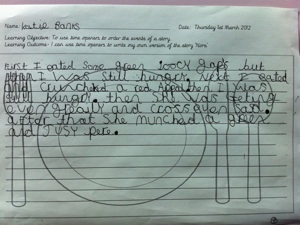 Name Katie Banks Date: Thursday 1st March 2012
Learning Objective: To use time openers to order the events of a story.
Learning Outcome: I can use time openers to write my own version of the story 'Nora'
First I eated some green goocy gaps but
then I was still hunger. Next I eated
and crunched a red Appal then I was
still hunger. then She was feeling
very greally and cross even sad.
after that She munched a green
and JUSY pere.